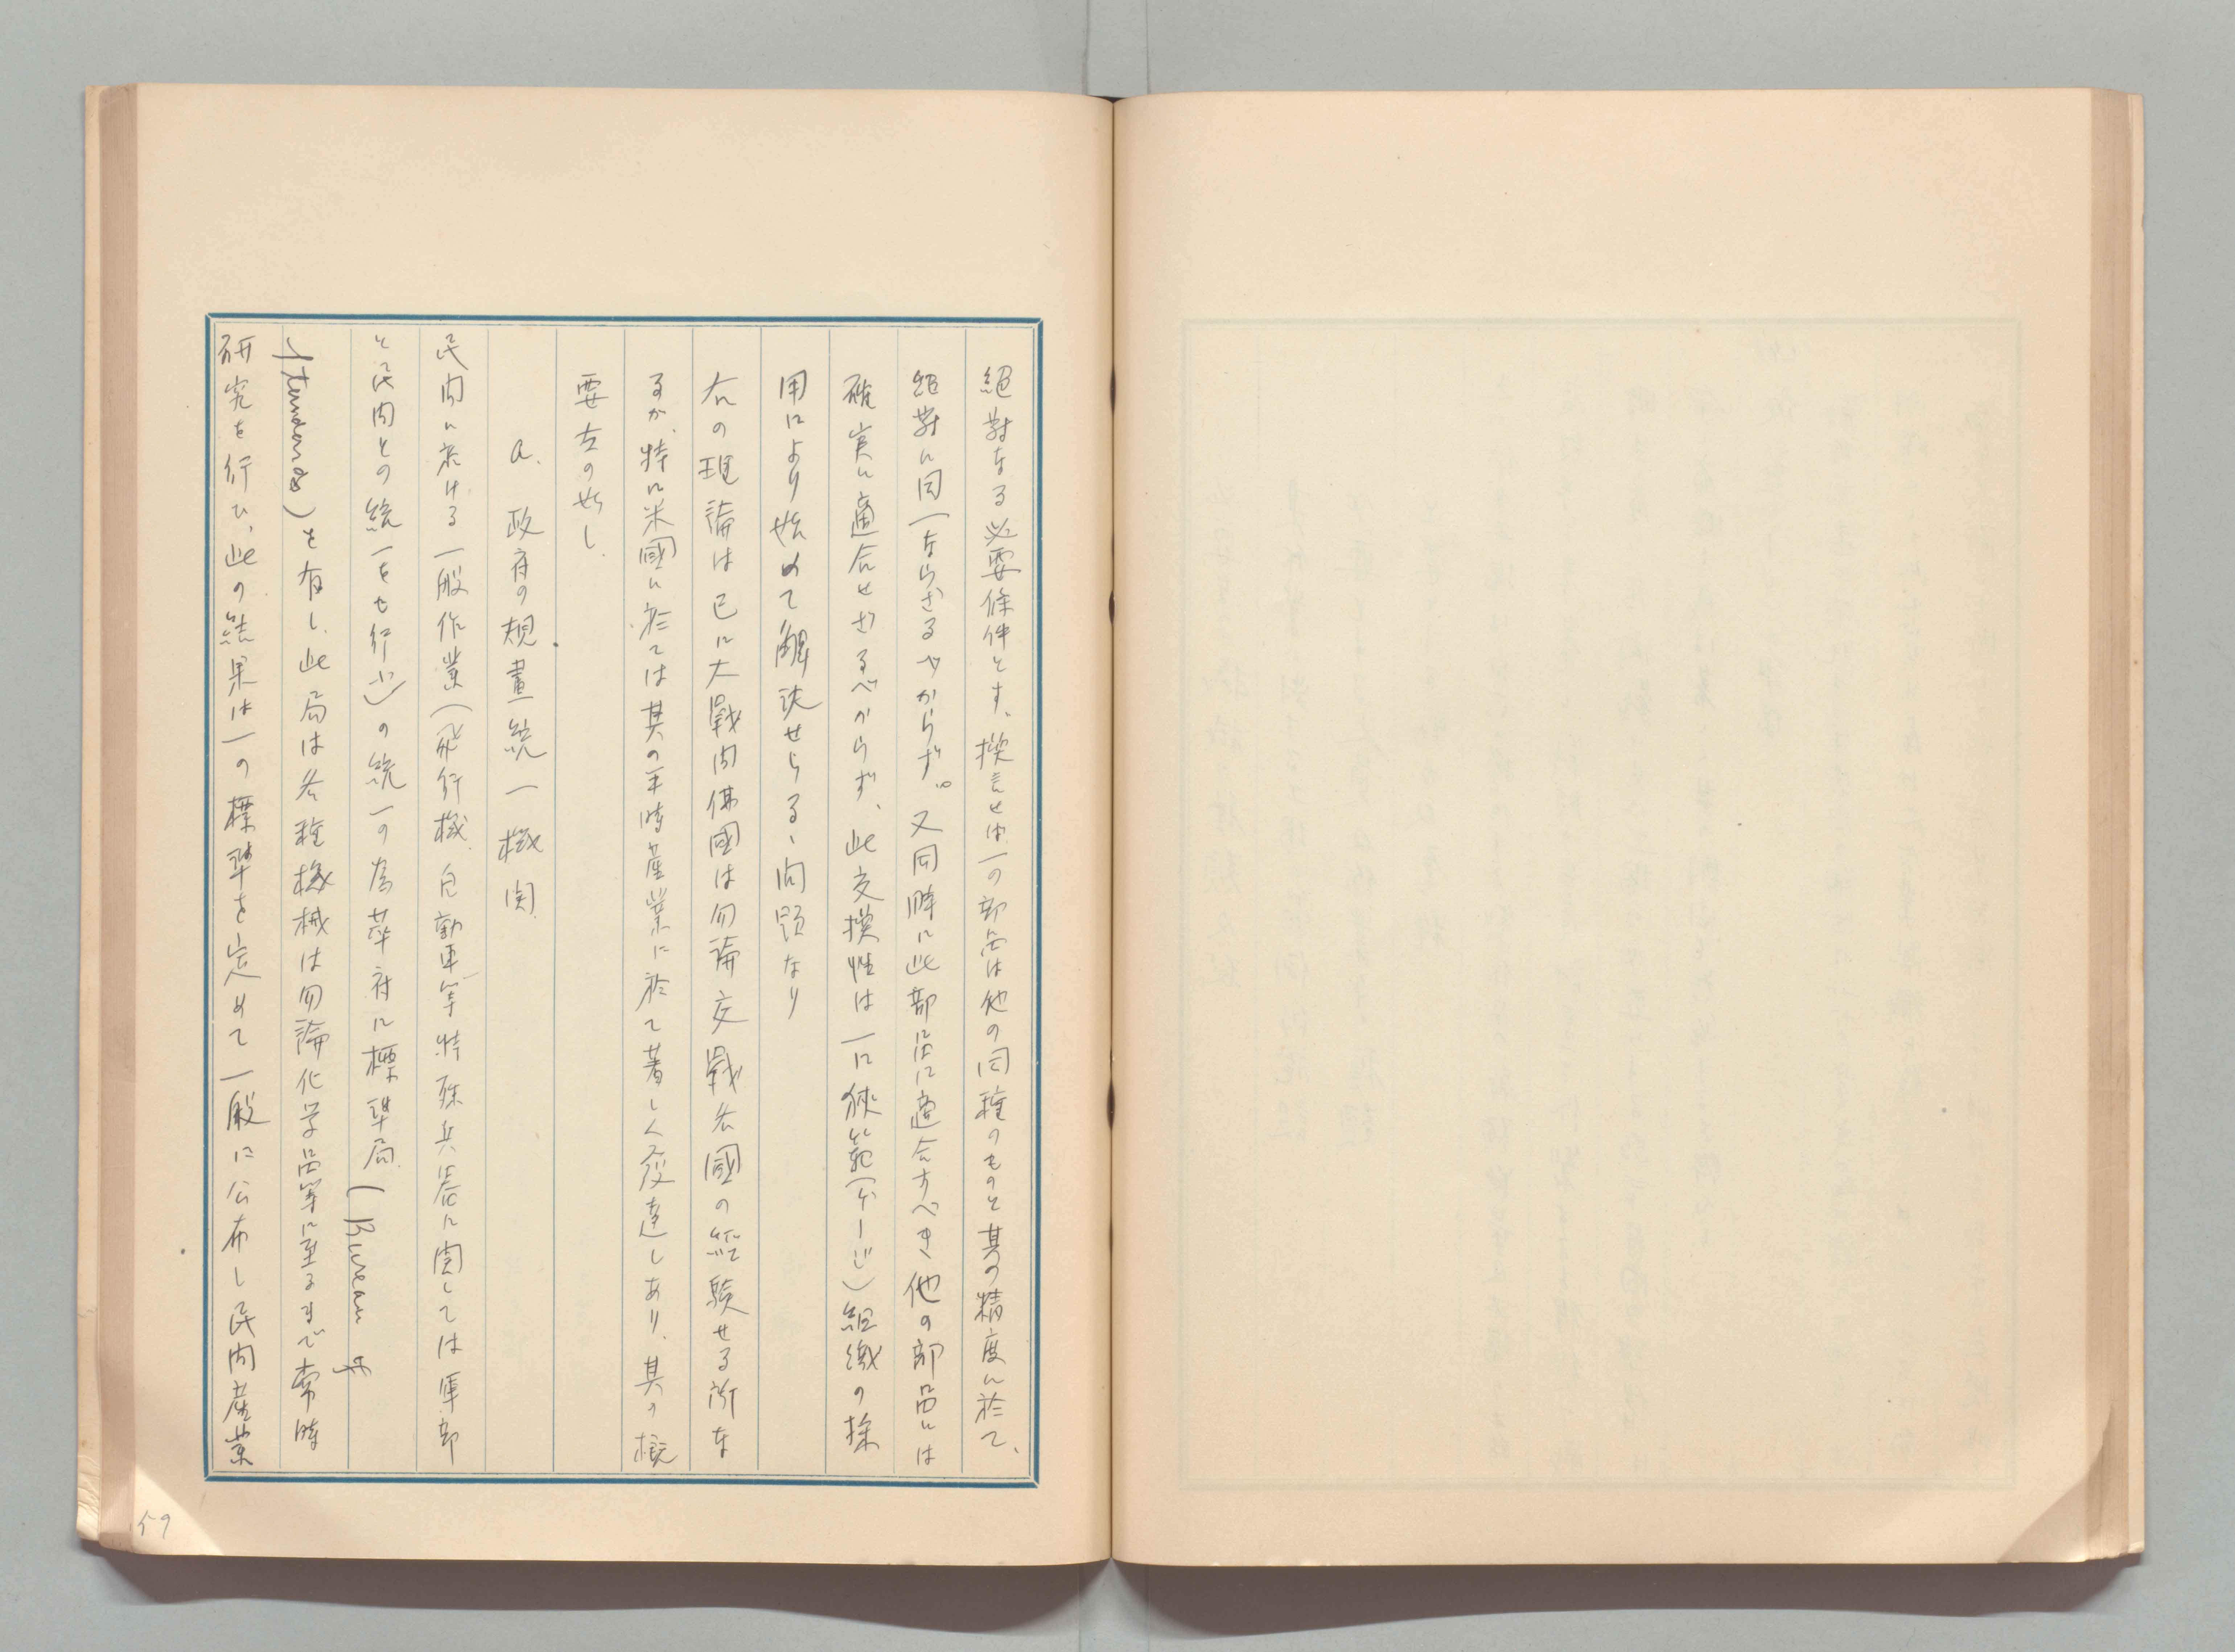 絕對なる必要條件とす、換言せば一の部品は他の同種のものと其の精度に於て、
絕對に同一ならざるべからず。又同時に此部品に適合すべき他の部品には
確実に適合せざるべからず、此交換性は一に狭範(ゲージ)組織の採
用により始めて解決せらるゝ問題なり
右の理論は已に大戰間佛國は勿論交戰各國の経験せる所な
るが、特に米國に於ては其の平時産業に於て著しく発達しあり、其の概
要左の如し
a. 政府の規畫統一機関
民間に於ける一般作業(飛行機、自動車等特殊兵器に関しては軍部
と民間との統一をも行ふ)の統一の為華府に標準局(Bureau of
Standards)を有し、此局は各種機械は勿論化学品等に至るまで常時
研究を行ひ、此の結果は一の標準を定めて一般に公布し民間産業
59